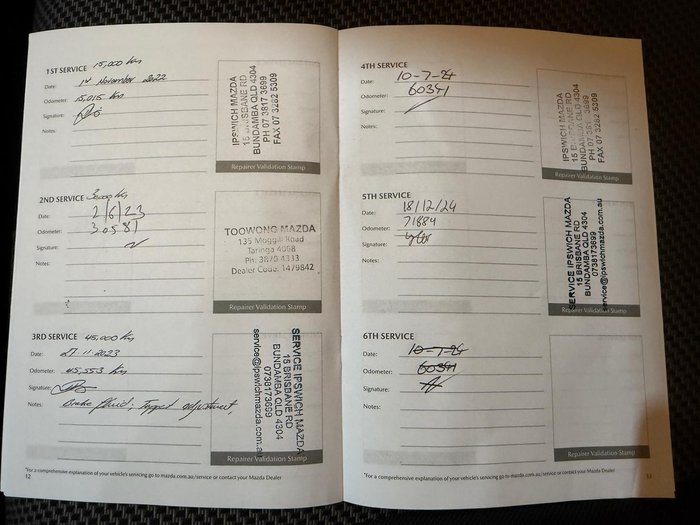 1ST SERVICE 15,000 Kms
Date: 14 November 2022
Odometer: 15,015 Kms
Signature:
Notes:
IPSWICH MAZDA
15 BRISBANE RD
BUNDAMBA QLD 4304
PH 07 3817 3699
FAX 07 3282 5309
Repairer Validation Stamp
2ND SERVICE 30000 Kms
Date: 2/6/23
Odometer: 30581
Signature:
Notes:
TOOWONG MAZDA
135 Moggill Road
Taringa 4068
Ph: 3870 4333
Dealer Code: 1479842
Repairer Validation Stamp
3RD SERVICE 45,000 Kms
Date: 27.11.2023
Odometer: 45,553 Kms
Signature:
Notes: Brake fluid, Tappet adjustment,
SERVICE IPSWICH MAZDA
15 BRISBANE RD
BUNDAMBA QLD 4304
0738173699
service@ipswichmazda.com.a
Repairer Validation Stamp
*For a comprehensive explanation of your vehicle's servicing go to mazda.com.au/service or contact your Mazda Dealer
12
4TH SERVICE
Date: 10-7-24
Odometer: 60341
Signature:
Notes:
IPSWICH MAZDA
15 BRISBANE RD
BUNDAMBA QLD 4304
PH 07 3817 3699
FAX 07 3282 5309
Repairer Validation Stamp
5TH SERVICE
Date: 18/12/24
Odometer: 71884
Signature:
Notes:
SERVICE IPSWICH MAZDA
15 BRISBANE RD
BUNDAMBA QLD 4304
0738173699
service@ipswichmazda.com.au
Repairer Validation Stamp
6TH SERVICE
Date: 10-7-24
Odometer: 60341
Signature:
Notes:
Repairer Validation Stamp
*For a comprehensive explanation of your vehicle's servicing go to mazda.com.au/service or contact your Mazda Dealer
13